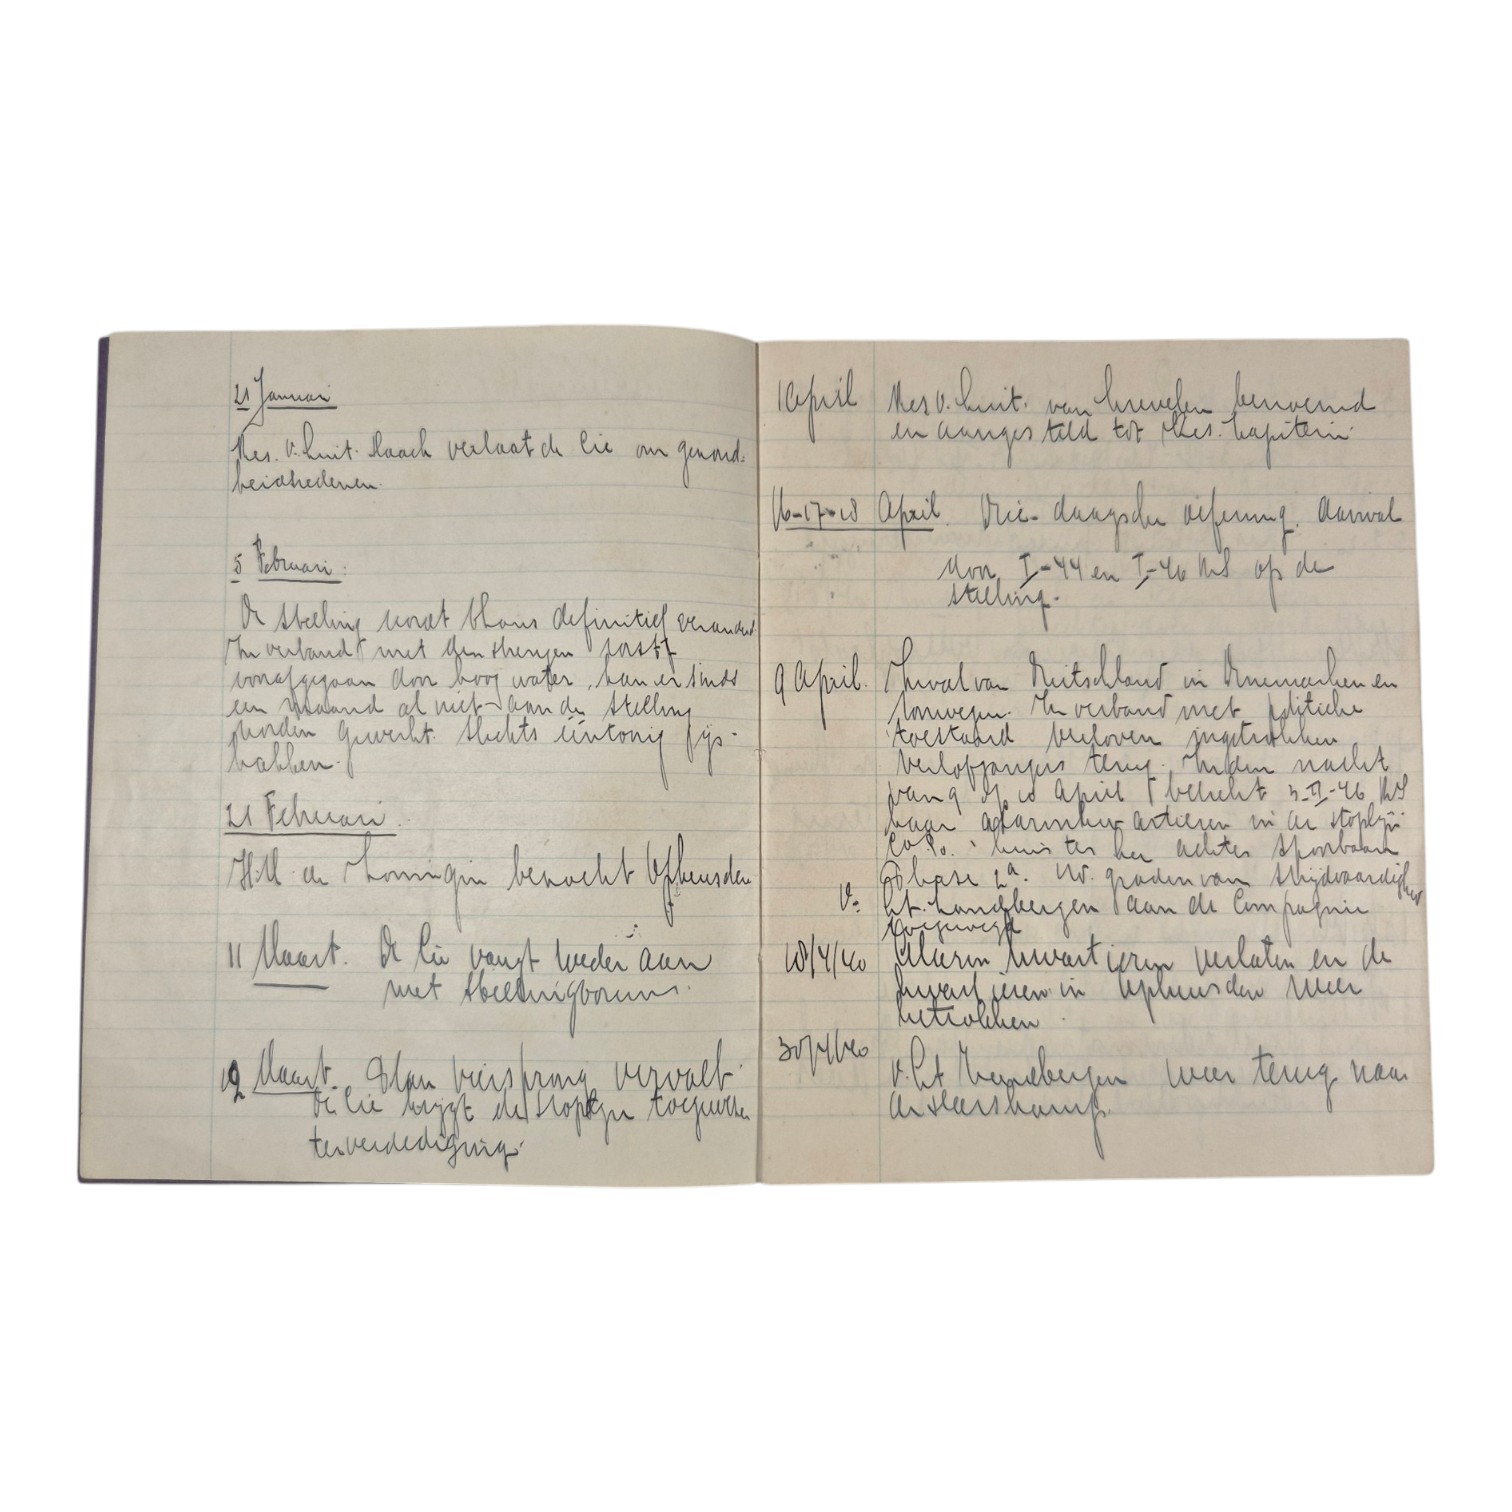 21 Januari
Res. v. Luit. Maach verlaat de Cie om gezond-
heidsredenen.
5 Februari:
De stelling wordt thans definitief veranderd
In verband met den strengen vorst,
voorafgegaan door hoog water, kan er sinds
een maand al niet aan de stelling
worden gewerkt. Slechts eentonig ijs-
hakken.
21 Februari.
H.M. de Koningin bezocht Opheusden
11 Maart. De Cie vangt weder aan
met stellingbouw.
12 Maart. Plan viersprong vervalt.
De Cie krijgt de stoplijn toegewezen
ter verdediging.
1 April Res v. Luit. van benoemd
en aangesteld tot Res. Kapitein.
16-17-18 April. Drie-daagsche oefening. Aanval
door I-44 en I-46 RI op de
stelling.
9 April. Inval van Duitschland in Denemarken en
Noorwegen. In verband met politieke
toestand verloven ingetrokken
verlofgangers terug. In den nacht
van 9 op 10 April betrekt 3-II-46 RI
haar alarmkwartieren in de stoplijn
Co.Po. huis ter achter spoorbaan
Phase 2a. Nv. graden van strijdvaardigheid
v. Lt. aan de Compagnie
toegevoegd
18/4/40 Alarm kwartieren verlaten en de
kwartieren in Opheusden weer
betrokken.
30/4/40 v. Lt weer terug naar
de Harskamp.